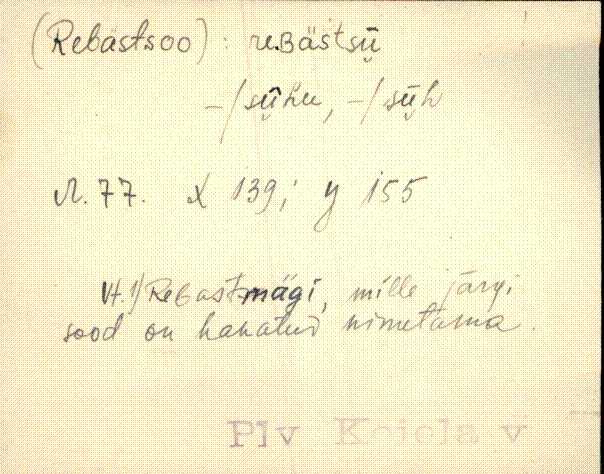 (Rebastsoo) : reʙästsü̬
-/sü̬hu, -/sü̬h
Л. 77. X 139; y 155
Vt. 1) Rebastmägi, mille järgi
sood on hakatud nimetama.
Plv Koiola v